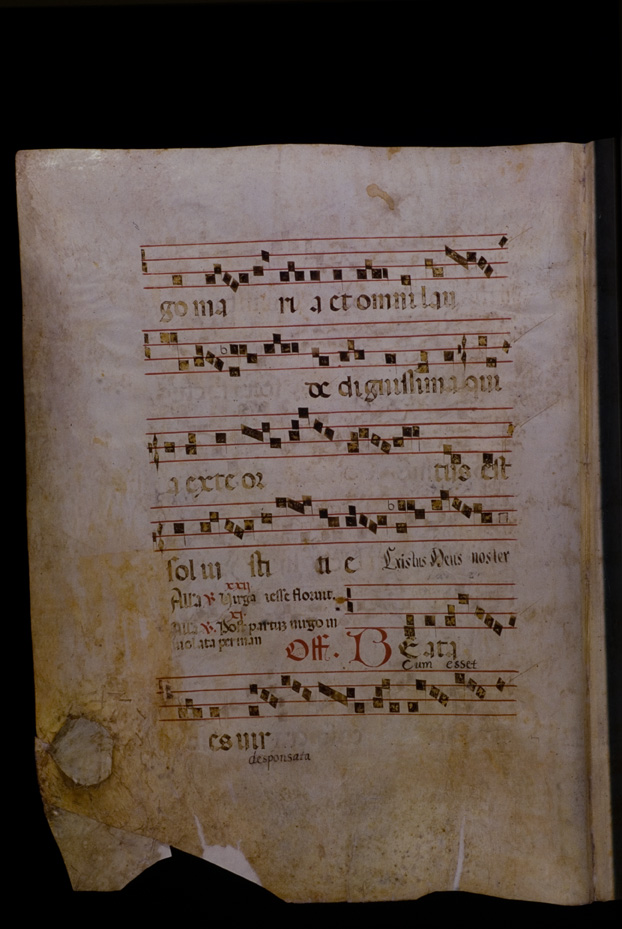 go ma ri a et omni lau
de dignissima qui
a ex te or tus est
sol iu sti ti e Cristus Deus noster
xxij
Alla ℟ Virga iesse floruit.
xj.
Alla ℣. Post partum virgo in
uiolata perman Off. B E ata
Cum esset
es uir
desponsata